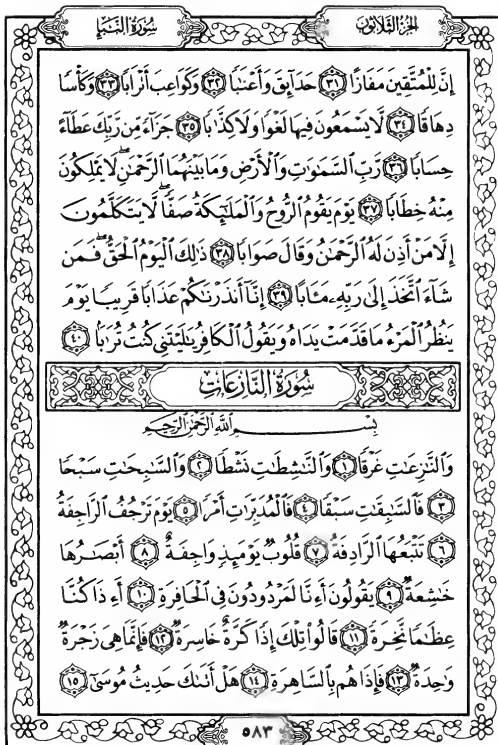 سُورَةُ النَّبَإِ
الجُزْءُ الثَّلَاثُونَ
إِنَّ لِلْمُتَّقِينَ مَفَازًا ٣١ حَدَآئِقَ وَأَعْنَٰبًا ٣٢ وَكَوَاعِبَ أَتْرَابًا ٣٣ وَكَأْسًا
دِهَاقًا ٣٤ لَّا يَسْمَعُونَ فِيهَا لَغْوًا وَلَا كِذَّٰبًا ٣٥ جَزَآءً مِّن رَّبِّكَ عَطَآءً
حِسَابًا ٣٦ رَّبِّ السَّمَٰوَٰتِ وَالْأَرْضِ وَمَا بَيْنَهُمَا الرَّحْمَٰنِ ۖ لَا يَمْلِكُونَ
مِنْهُ خِطَابًا ٣٧ يَوْمَ يَقُومُ الرُّوحُ وَالْمَلَٰٓئِكَةُ صَفًّا ۖ لَّا يَتَكَلَّمُونَ
إِلَّا مَنْ أَذِنَ لَهُ الرَّحْمَٰنُ وَقَالَ صَوَابًا ٣٨ ذَٰلِكَ الْيَوْمُ الْحَقُّ ۖ فَمَن
شَآءَ اتَّخَذَ إِلَىٰ رَبِّهِۦ مَـَٔابًا ٣٩ إِنَّآ أَنذَرْنَٰكُمْ عَذَابًا قَرِيبًا يَوْمَ
يَنظُرُ الْمَرْءُ مَا قَدَّمَتْ يَدَاهُ وَيَقُولُ الْكَافِرُ يَٰلَيْتَنِى كُنتُ تُرَٰبًۢا ٤٠
سُورَةُ النَّازِعَاتِ
بِسْمِ اللَّهِ الرَّحْمَٰنِ الرَّحِيمِ
وَالنَّٰزِعَٰتِ غَرْقًا ١ وَالنَّٰشِطَٰتِ نَشْطًا ٢ وَالسَّٰبِحَٰتِ سَبْحًا
٣ فَالسَّٰبِقَٰتِ سَبْقًا ٤ فَالْمُدَبِّرَٰتِ أَمْرًا ٥ يَوْمَ تَرْجُفُ الرَّاجِفَةُ
٦ تَتْبَعُهَا الرَّادِفَةُ ٧ قُلُوبٌ يَوْمَئِذٍ وَاجِفَةٌ ٨ أَبْصَٰرُهَا
خَٰشِعَةٌ ٩ يَقُولُونَ أَءِنَّا لَمَرْدُودُونَ فِى الْحَافِرَةِ ١٠ أَءِذَا كُنَّا
عِظَٰمًا نَّخِرَةً ١١ قَالُوا۟ تِلْكَ إِذًا كَرَّةٌ خَاسِرَةٌ ١٢ فَإِنَّمَا هِىَ زَجْرَةٌ
وَٰحِدَةٌ ١٣ فَإِذَا هُم بِالسَّاهِرَةِ ١٤ هَلْ أَتَىٰكَ حَدِيثُ مُوسَىٰٓ ١٥
٥٨٣